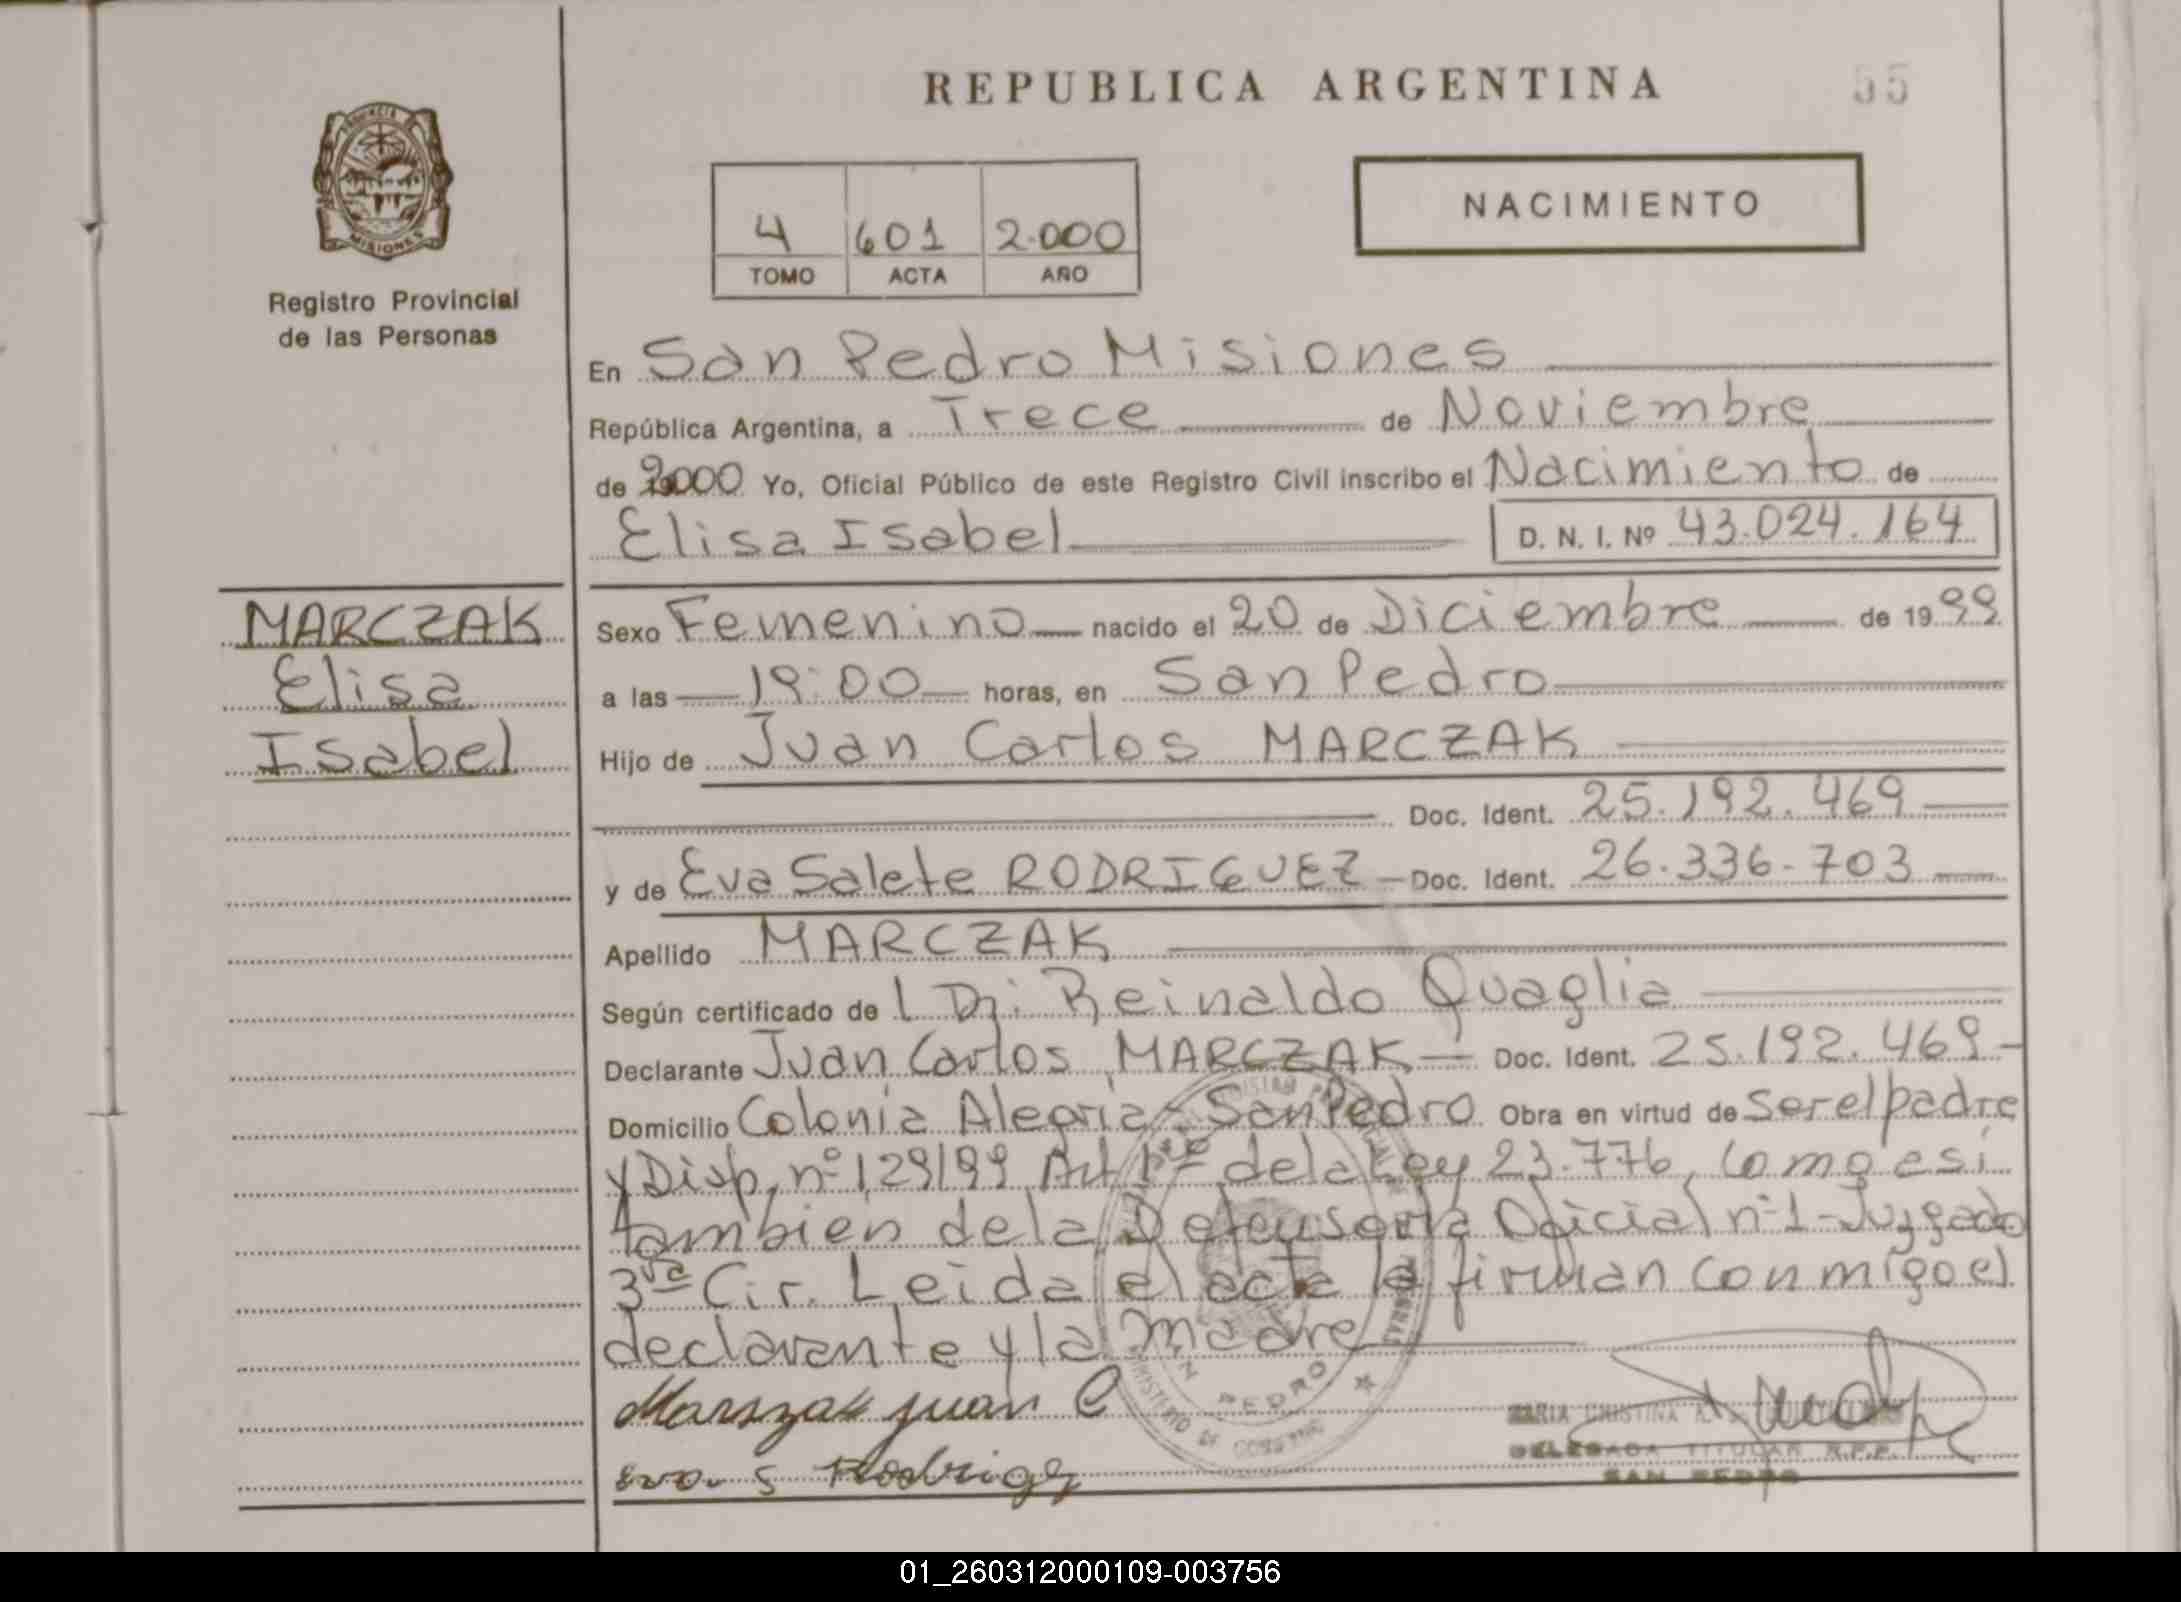 REPUBLICA ARGENTINA
55
PROVINCIA DE
MISIONES
Registro Provincial
de las Personas
4 601 2.000
TOMO ACTA AÑO
NACIMIENTO
En San Pedro Misiones
República Argentina, a Trece de Noviembre
de 2000 Yo, Oficial Público de este Registro Civil inscribo el Nacimiento de
Elisa Isabel D. N. I. Nº 43.024.164
MARCZAK
Elisa
Isabel
Sexo Femenino nacido el 20 de Diciembre de 1999
a las 19:00 horas, en San Pedro
Hijo de Juan Carlos MARCZAK
Doc. Ident. 25.192.469
y de Eva Salete RODRIGUEZ Doc. Ident. 26.336.703
Apellido MARCZAK
Según certificado de l Dr. Reinaldo Quaglia
Declarante Juan Carlos MARCZAK Doc. Ident. 25.192.469
Domicilio Colonia Alegria - San Pedro Obra en virtud de ser el padre
y Disp. nº 129/99 Art 1º de la Ley 23.776, como así
tambien de la Defensoria Oficial nº 1 - Juzgado
3ra Cir. Leida el acta la firman conmigo el
declarante y la madre
Marszak juan C
Eva S Rodrigz
MARIA CRISTINA
DELEGADA TITULAR R.P.P.
SAN PEDRO
MINISTERIO DE GOBIERNO
SAN PEDRO
01_260312000109-003756